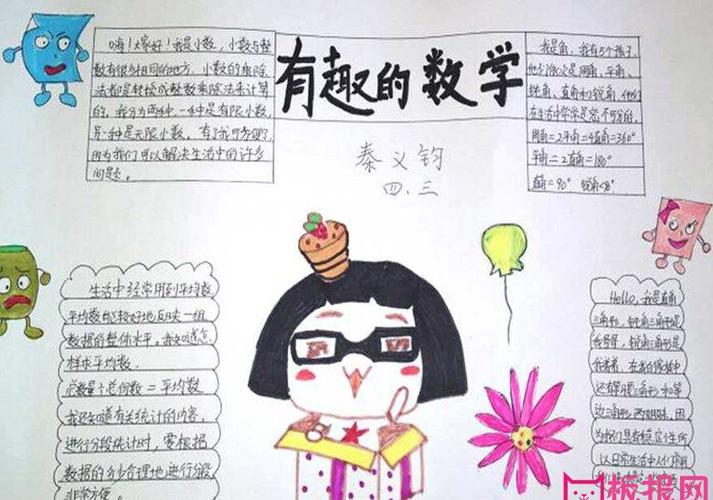 嗨！大家好！我是小数，小数与整
数有很多相同的地方，小数的乘除
法都是转换成整数乘除法来计算
的。我分为两种，一种是有限小数，
另一种是无限小数，有了我可方便了，
因为我们可以解决生活中的许多
问题。
有趣的数学
秦义钧
四、三
我是角，我有5个孩子
他们依次是周角、平角、
钝角、直角和锐角，他们
在生活中常常是密不可分的，
周角=2平角=4直角=360°
平角=2直角=180°
直角=90° 锐角<90°
生活中经常用到平均数
平均数能较好地反映一组
数据的整体水平。我知道怎
样求平均数。
总数量÷总份数=平均数
我还知道有关统计的内容，
进行分段统计时，要根据
数据的多少合理地进行分段
非常方便。
Hello，我是直角
三角形，钝角三角形是
我哥哥，锐角三角形是
我弟弟，在我的家族中
还有等腰三角形和等
边三角形两姐妹，因
为我们具有稳定性所
以日常生活中人们常用
板报网